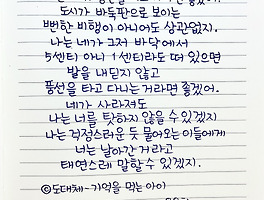 도시가 바둑판으로 보이는
뻔한 비행이 아니어도 상관없지.
나는 네가 그저 바닥에서
5센티 아니 1센티라도 떠 있으면
발을 내딛지 않고
풍선을 타고 다니는거라면 좋겠어.
네가 사라져도
나는 너를 탓하지 않을 수 있겠지
나는 걱정스러운 듯 물어오는 이들에게
너는 날아간 거라고
태연스레 말할 수 있겠지.
©도대체-기억을 먹는 아이